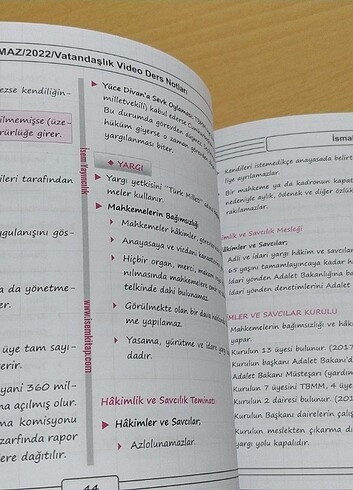 MAZ/2022/Vatandaşlık Video Ders Notları
ezse kendiliğin-
ilmemişse (üze-
rürlüğe girer.
ileri tarafından
uygulanışını gös-
a da yönetme-
er.
üye tam sayı-
erir.
yani 360 mil-
na açılmış olur.
ma komisyonu
zarfında rapor
ere dağıtılır.
İsem Yayıncılık
www.isemkitap.com
Yüce Divan'a Sevk Oylaması:
milletvekili) kabul ederse Cumhur
Bu durumda görevden düşmez.
hüküm giyerse o zaman görevden
yargılanması biter.
YARGI
Yargı yetkisini "Türk Milleti"
meler kullanır.
Mahkemelerin Bağımsızlığı
Mahkemeler hâkimler, görevle
Anayasaya ve vicdani kanaatle
Hiçbir organ, merci, makam
nılmasında mahkemelere emir
telkinde dahi bulunamaz.
Görülmekte olan bir dava hakkı
me yapılamaz.
Yasama, yürütme ve idare yargı
dadır.
Hâkimlik ve Savcılık Teminatı
Hâkimler ve Savcılar;
Azlolunamazlar.
44
İsma
Kendileri istemedikçe anayasada belirt
lipe ayrılamazlar.
Bir mahkeme ya da kadronun kapat
nedeniyle aylık, ödenek ve diğer özlük
rakılamazlar.
mlik ve Savcılık Mesleği
âkimler ve Savcılar;
Adli ve idari yargı hâkim ve savcılar
65 yaşını tamamlayıncaya kadar h
İdari yönden Adalet Bakanlığına b
İdari yönden denetimlerini Adalet
İMLER VE SAVCILAR KURULU
Mahkemelerin bağımsızlığı ve hâk
yapar.
Kurulun 13 üyesi bulunur. (2017
Kurulun başkanı Adalet Bakanı'd
Adalet Bakanı Müsteşarı (yardım
Kurulun 7 üyesini TBMM, 4 üye
Kurulun 2 dairesi bulunur. (201
Kurulun Başkanı dairelerin çalış
Kurulun meslekten çıkarma dı
yargı yolu kapalıdır.